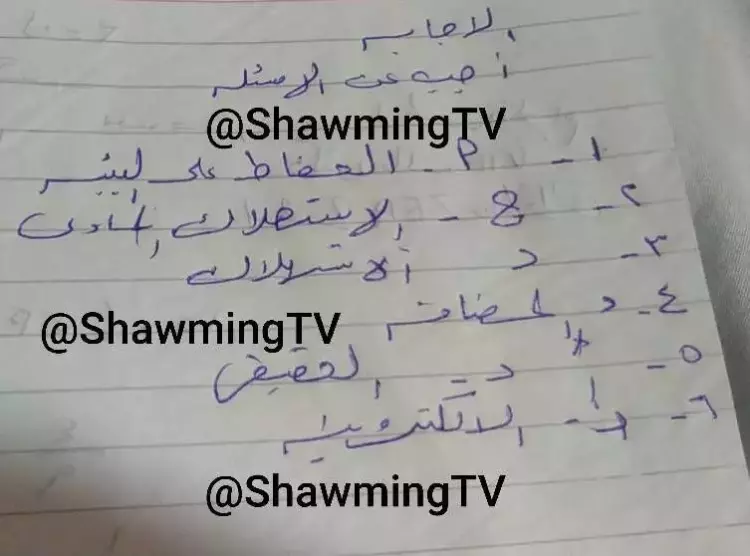 الاجابه
أجيب عن الاسئله
@ShawmingTV
١- ٢- الحفاظ على البيئه
٢- ج - الاستهلاك المادى
٣- د الاستهلاك
٤- د
@ShawmingTV
٥- د - الحقيقى
٦- د - الالكترونيه
@ShawmingTV